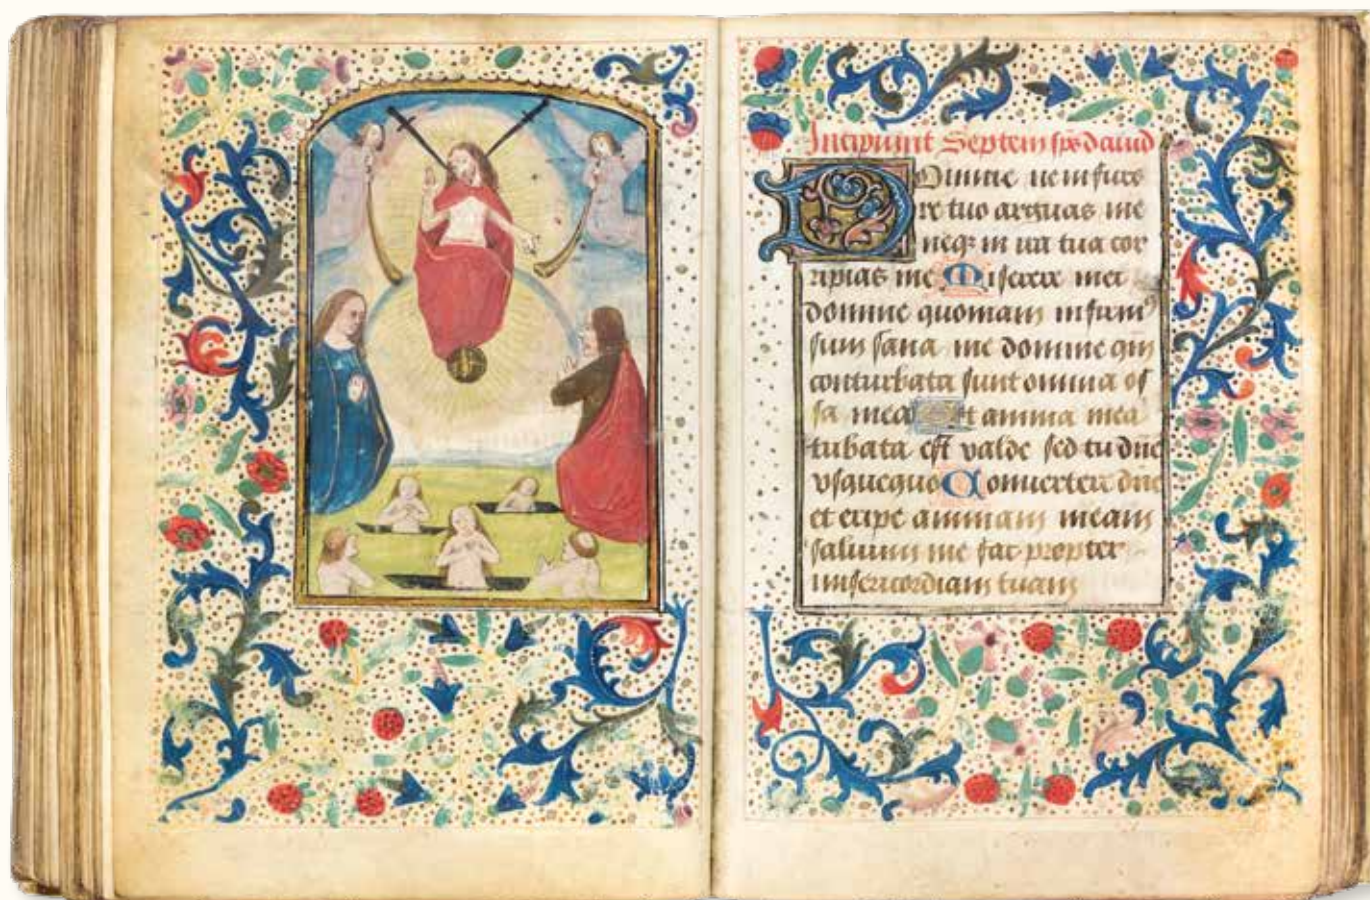 Incipiunt Septem ps̄ dauid
Domine ne in furo
re tuo arguas me
neqꝫ in ira tua cor
ripias me Miserere mei
domine quoniam infirmꝰ
sum sana me domine qm̄
conturbata sunt omnia os
sa mea Et anima mea
tubata est valde sed tu dn̄e
vsquequo Conuertere dn̄e
et eripe animam meam
saluum me fac propter
misericordiam tuam